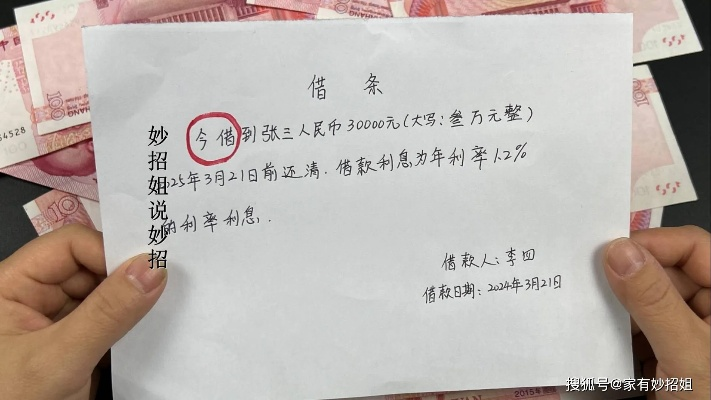 借 条
今借到张三人民币30000元(大写:叁万元整)
025年3月21日前还清.借款利息为年利率1.2%
的利率利息.
借款人:李四
借款日期:2024年3月21日
妙招姐说妙招
100
54528
2015年
搜狐号@家有妙招姐